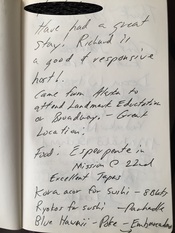 Have had a great
stay. Richard is
a good & responsive
host!
Came from Alaska to
attend Landmark Education
on Broadway. - Great
Location.
Food. Esperpento in
Mission @ 22nd
Excellent Tapas
Kara acur for sushi - 806ts
Ryokos for sushi -
Blue Hawaii - Poke - Embarcadero